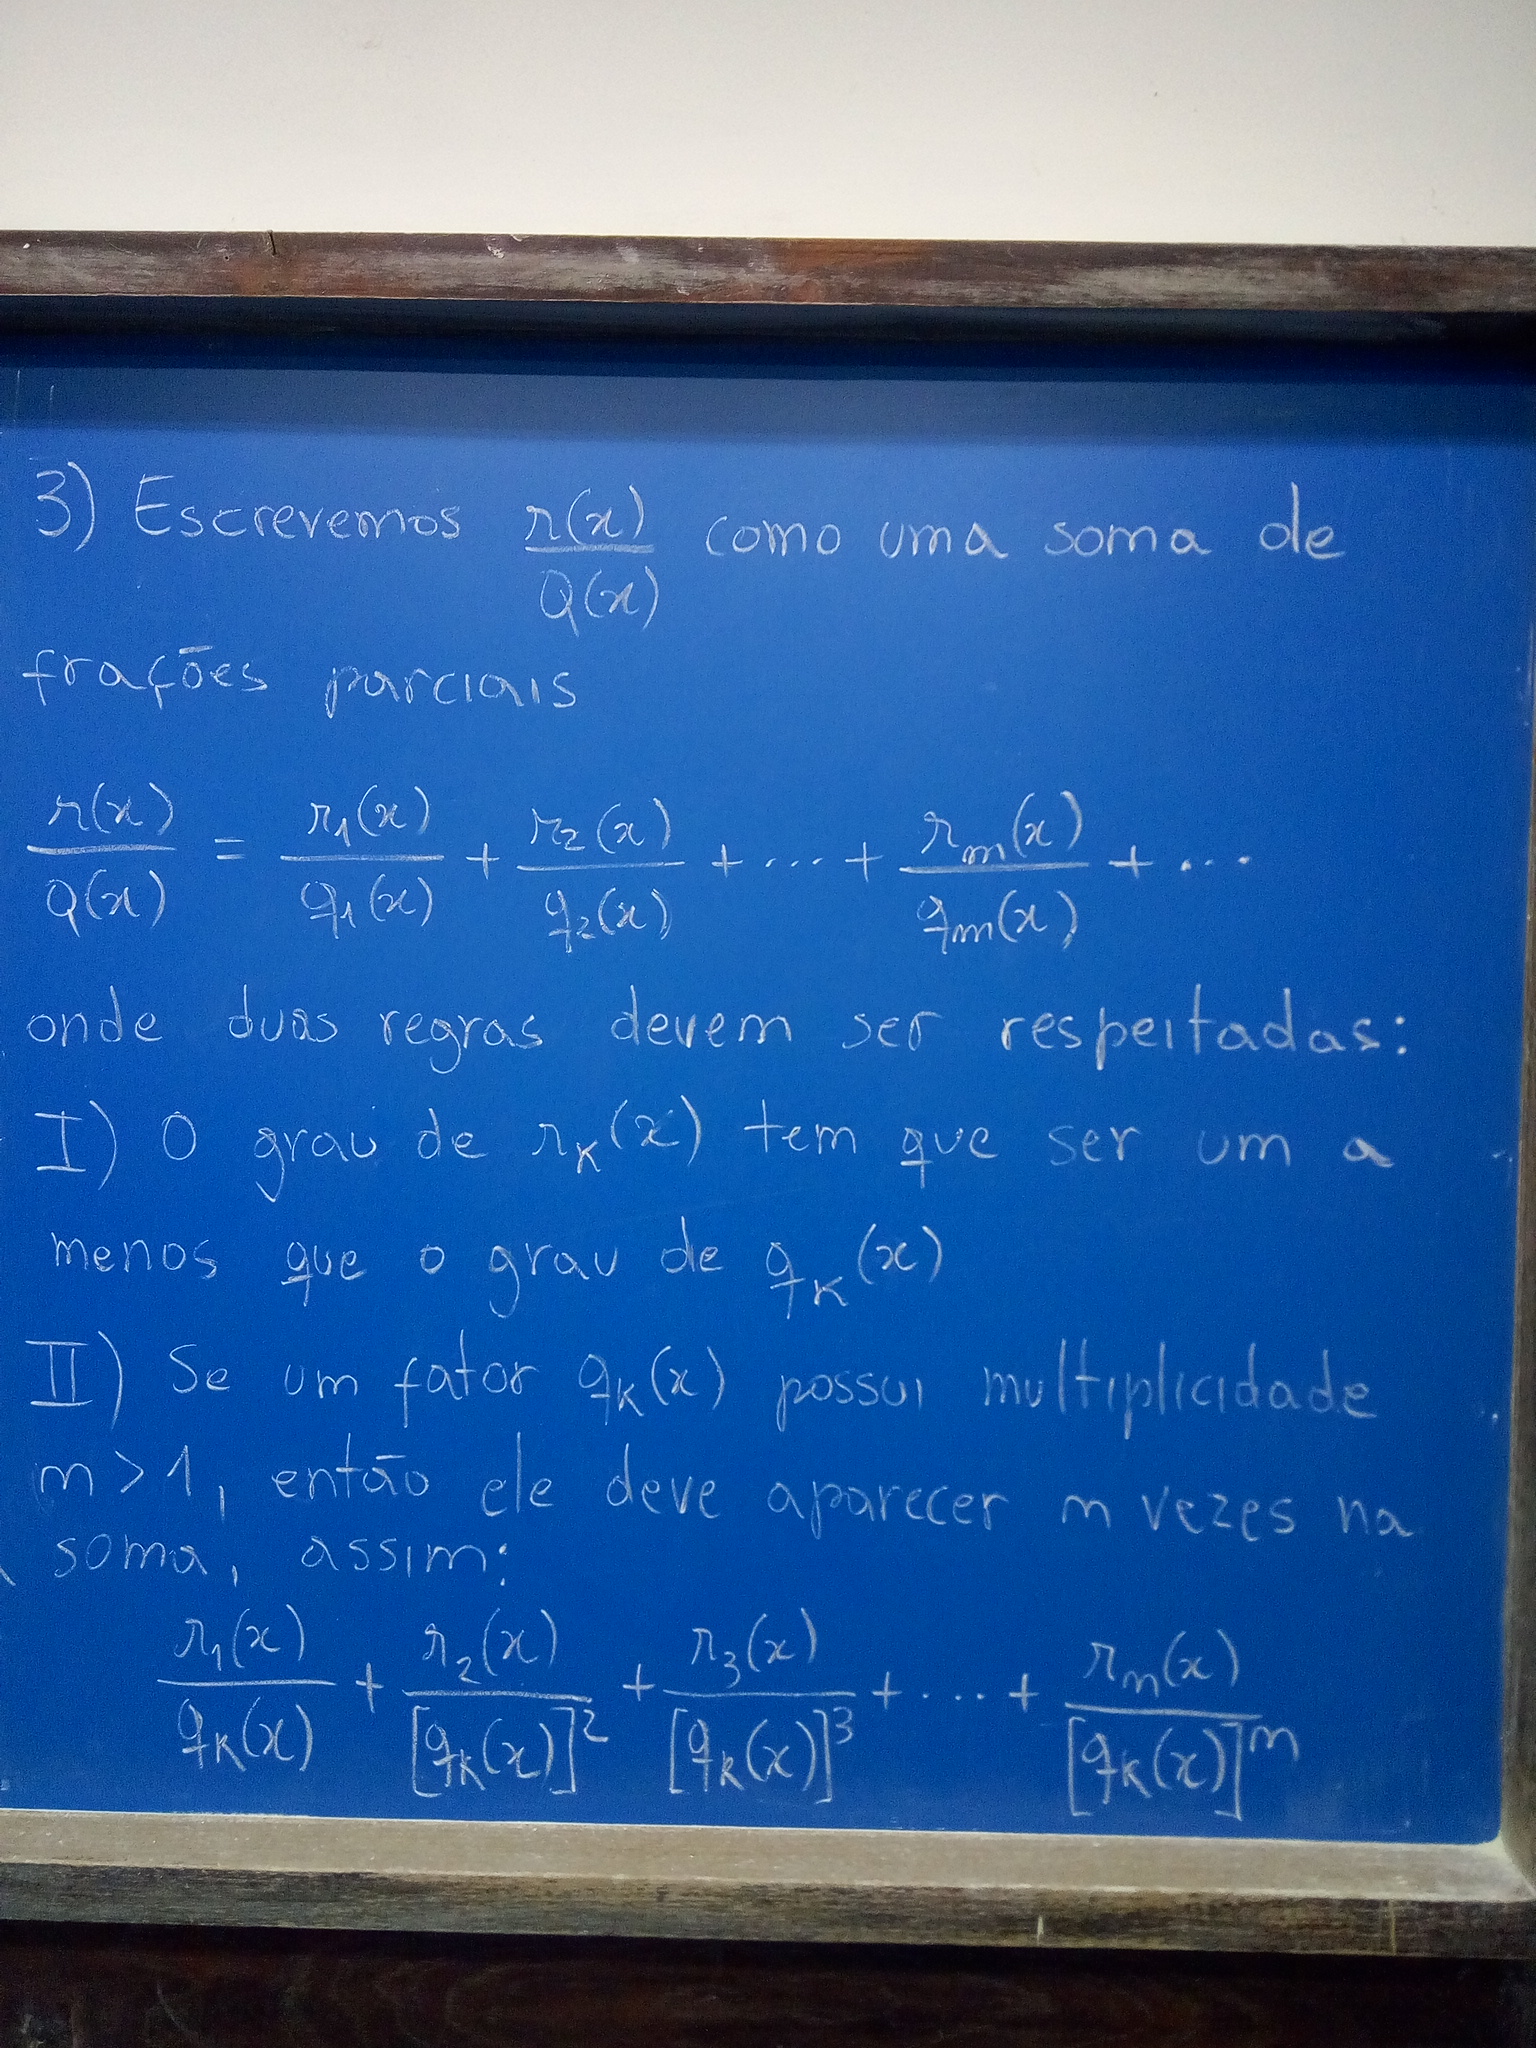 3) Escrevemos r(x)/Q(x) como uma soma de
frações parciais
r(x)/Q(x) = r₁(x)/q₁(x) + r₂(x)/q₂(x) + ... + rₘ(x)/qₘ(x) + ...
onde duas regras devem ser respeitadas:
I) O grau de rₖ(x) tem que ser um a
menos que o grau de qₖ(x)
II) Se um fator qₖ(x) possui multiplicidade
m > 1, então ele deve aparecer m vezes na
soma, assim:
r₁(x)/qₖ(x) + r₂(x)/[qₖ(x)]² + r₃(x)/[qₖ(x)]³ + .... + rₘ(x)/[qₖ(x)]ᵐ